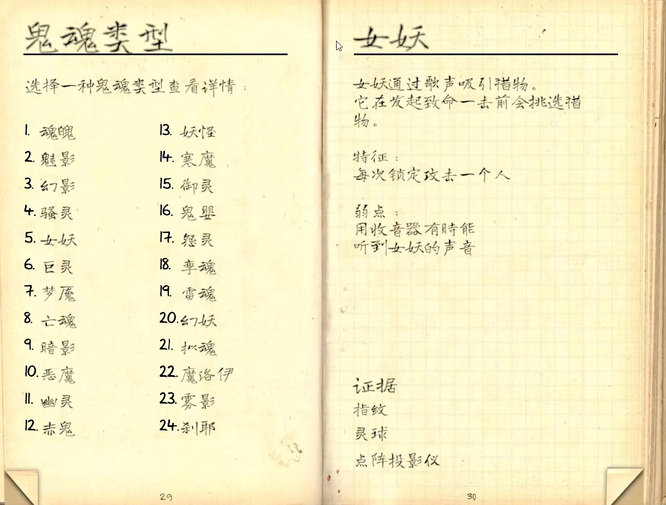 鬼魂类型
选择一种鬼魂类型查看详情：
1. 魂魄
2. 魅影
3. 幻影
4. 骚灵
5. 女妖
6. 巨灵
7. 梦魇
8. 亡魂
9. 暗影
10. 恶魔
11. 幽灵
12. 赤鬼
13. 妖怪
14. 寒魔
15. 御灵
16. 鬼婴
17. 怨灵
18. 孪魂
19. 雷魂
20. 幻妖
21. 拟魂
22. 魔洛伊
23. 雾影
24. 刹耶
29
女妖
女妖通过歌声吸引猎物。
它在发起致命一击前会挑选猎
物。
特征：
每次锁定攻击一个人
弱点：
用收音器有時能
听到女妖的声音
证据
指纹
灵球
点阵投影仪
30